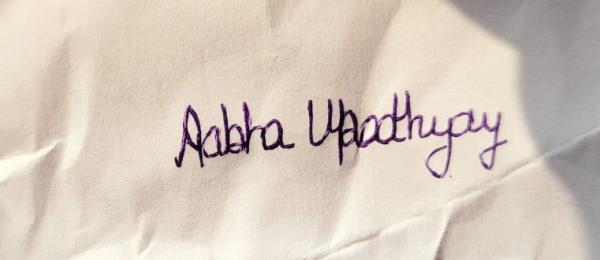 Aabha Upadhyay